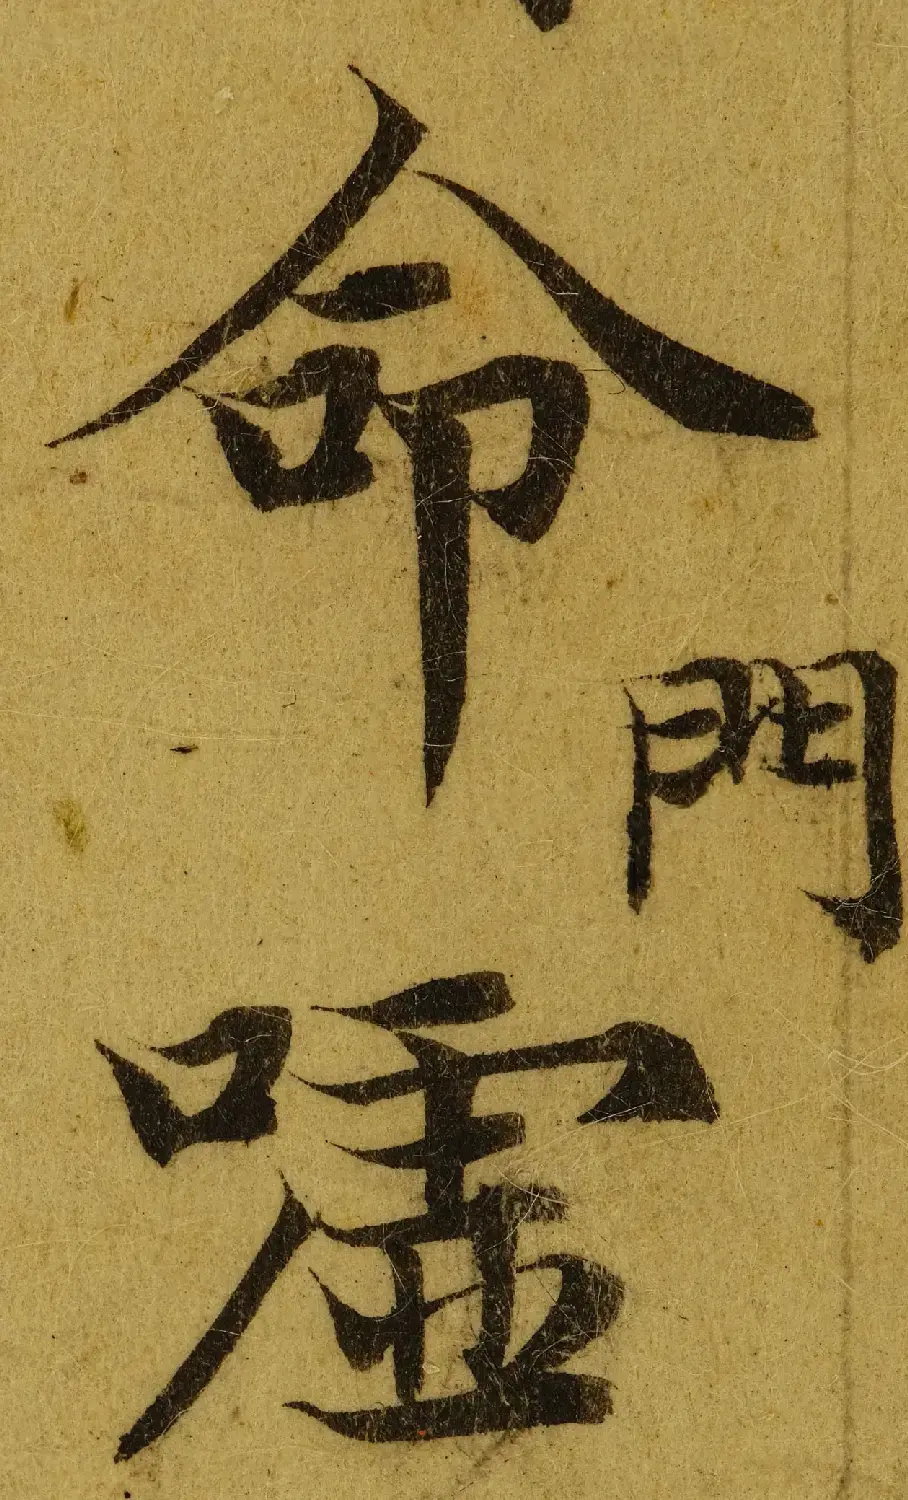 命門噓